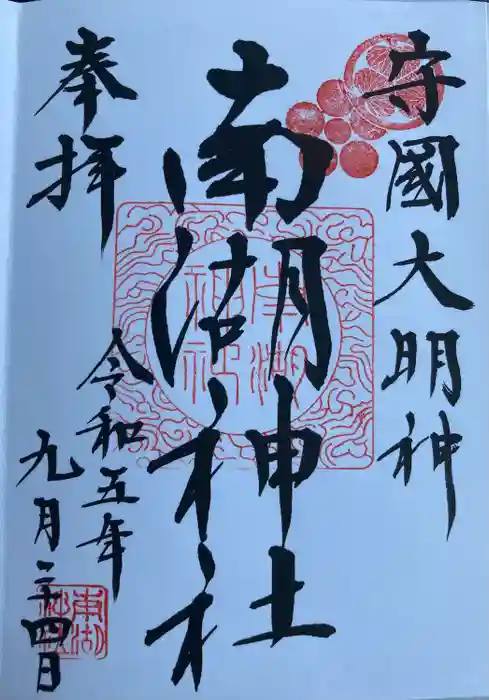 守國大明神
南湖神社
奉拝
令和五年
九月二十四日
南湖神社
南湖神社